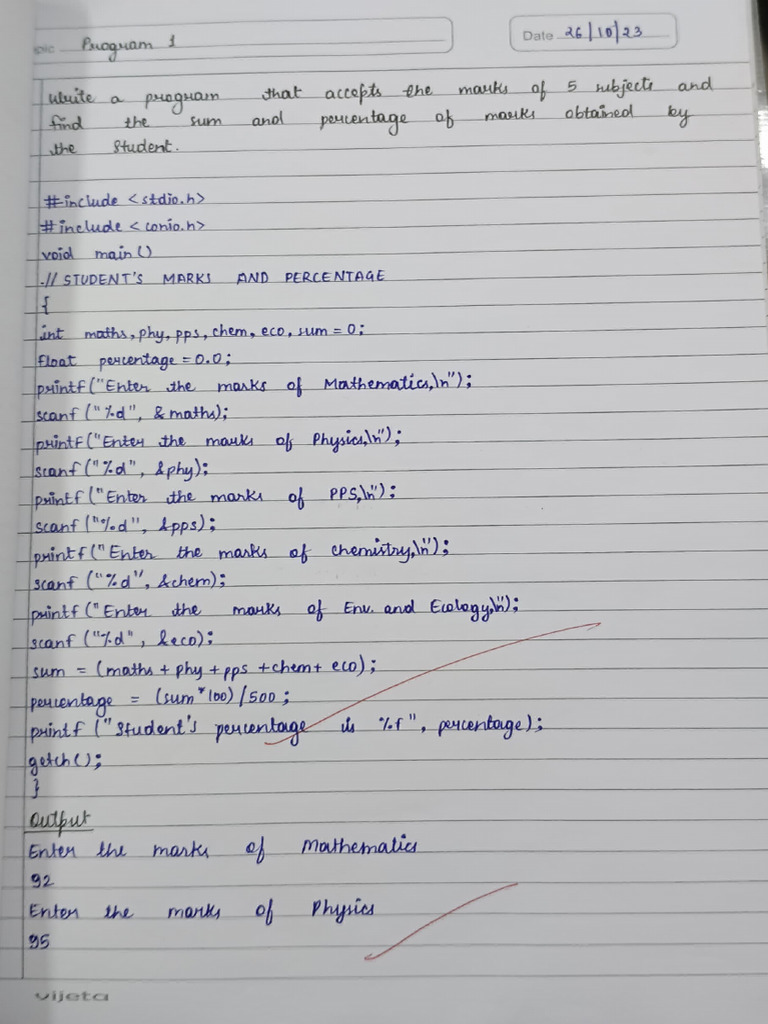 Program 1
Date 26/10/23
Write a program that accepts the marks of 5 subjects and
find the sum and percentage of marks obtained by
the Student.
#include <stdio.h>
#include <conio.h>
void main()
.// STUDENT'S MARKS AND PERCENTAGE
{
int maths, phy, pps, chem, eco, sum = 0;
float percentage = 0.0;
printf("Enter the marks of Mathematics,\n");
scanf ("%d", &maths);
printf("Enter the marks of Physics,\n");
scanf ("%d", &phy);
printf("Enter the marks of PPS,\n");
scanf ("%d", &pps);
printf("Enter the marks of chemistry,\n");
scanf ("%d", &chem);
printf("Enter the marks of Env. and Ecology,\n");
scanf ("%d", &eco);
sum = (maths + phy + pps + chem + eco);
percentage = (sum * 100) / 500;
printf ("Student's percentage is %f", percentage);
getch();
}
Output
Enter the marks of Mathematics
92
Enter the marks of Physics
95
vijeta